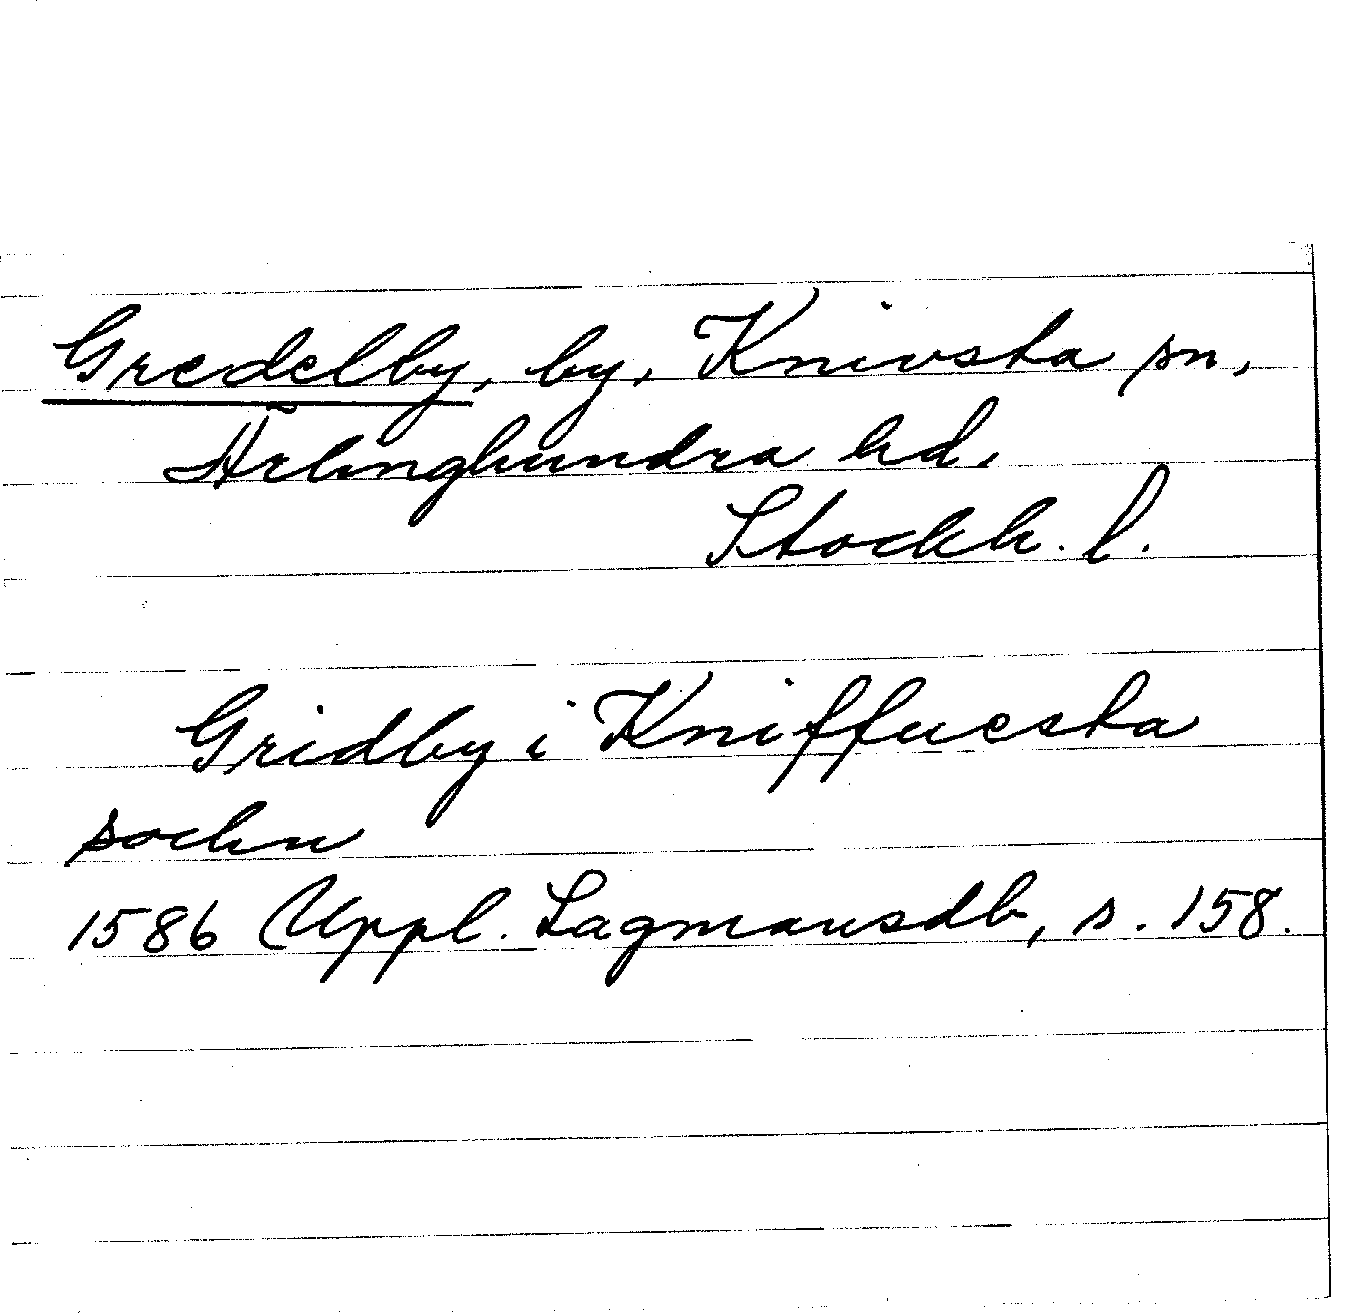 Gredelby, by, Knivsta sn,
Ärlinghundra hd,
Stockh. l.
Gridby i Kniffuesta
sochn
1586 Uppl. Lagmansdb, s. 158.